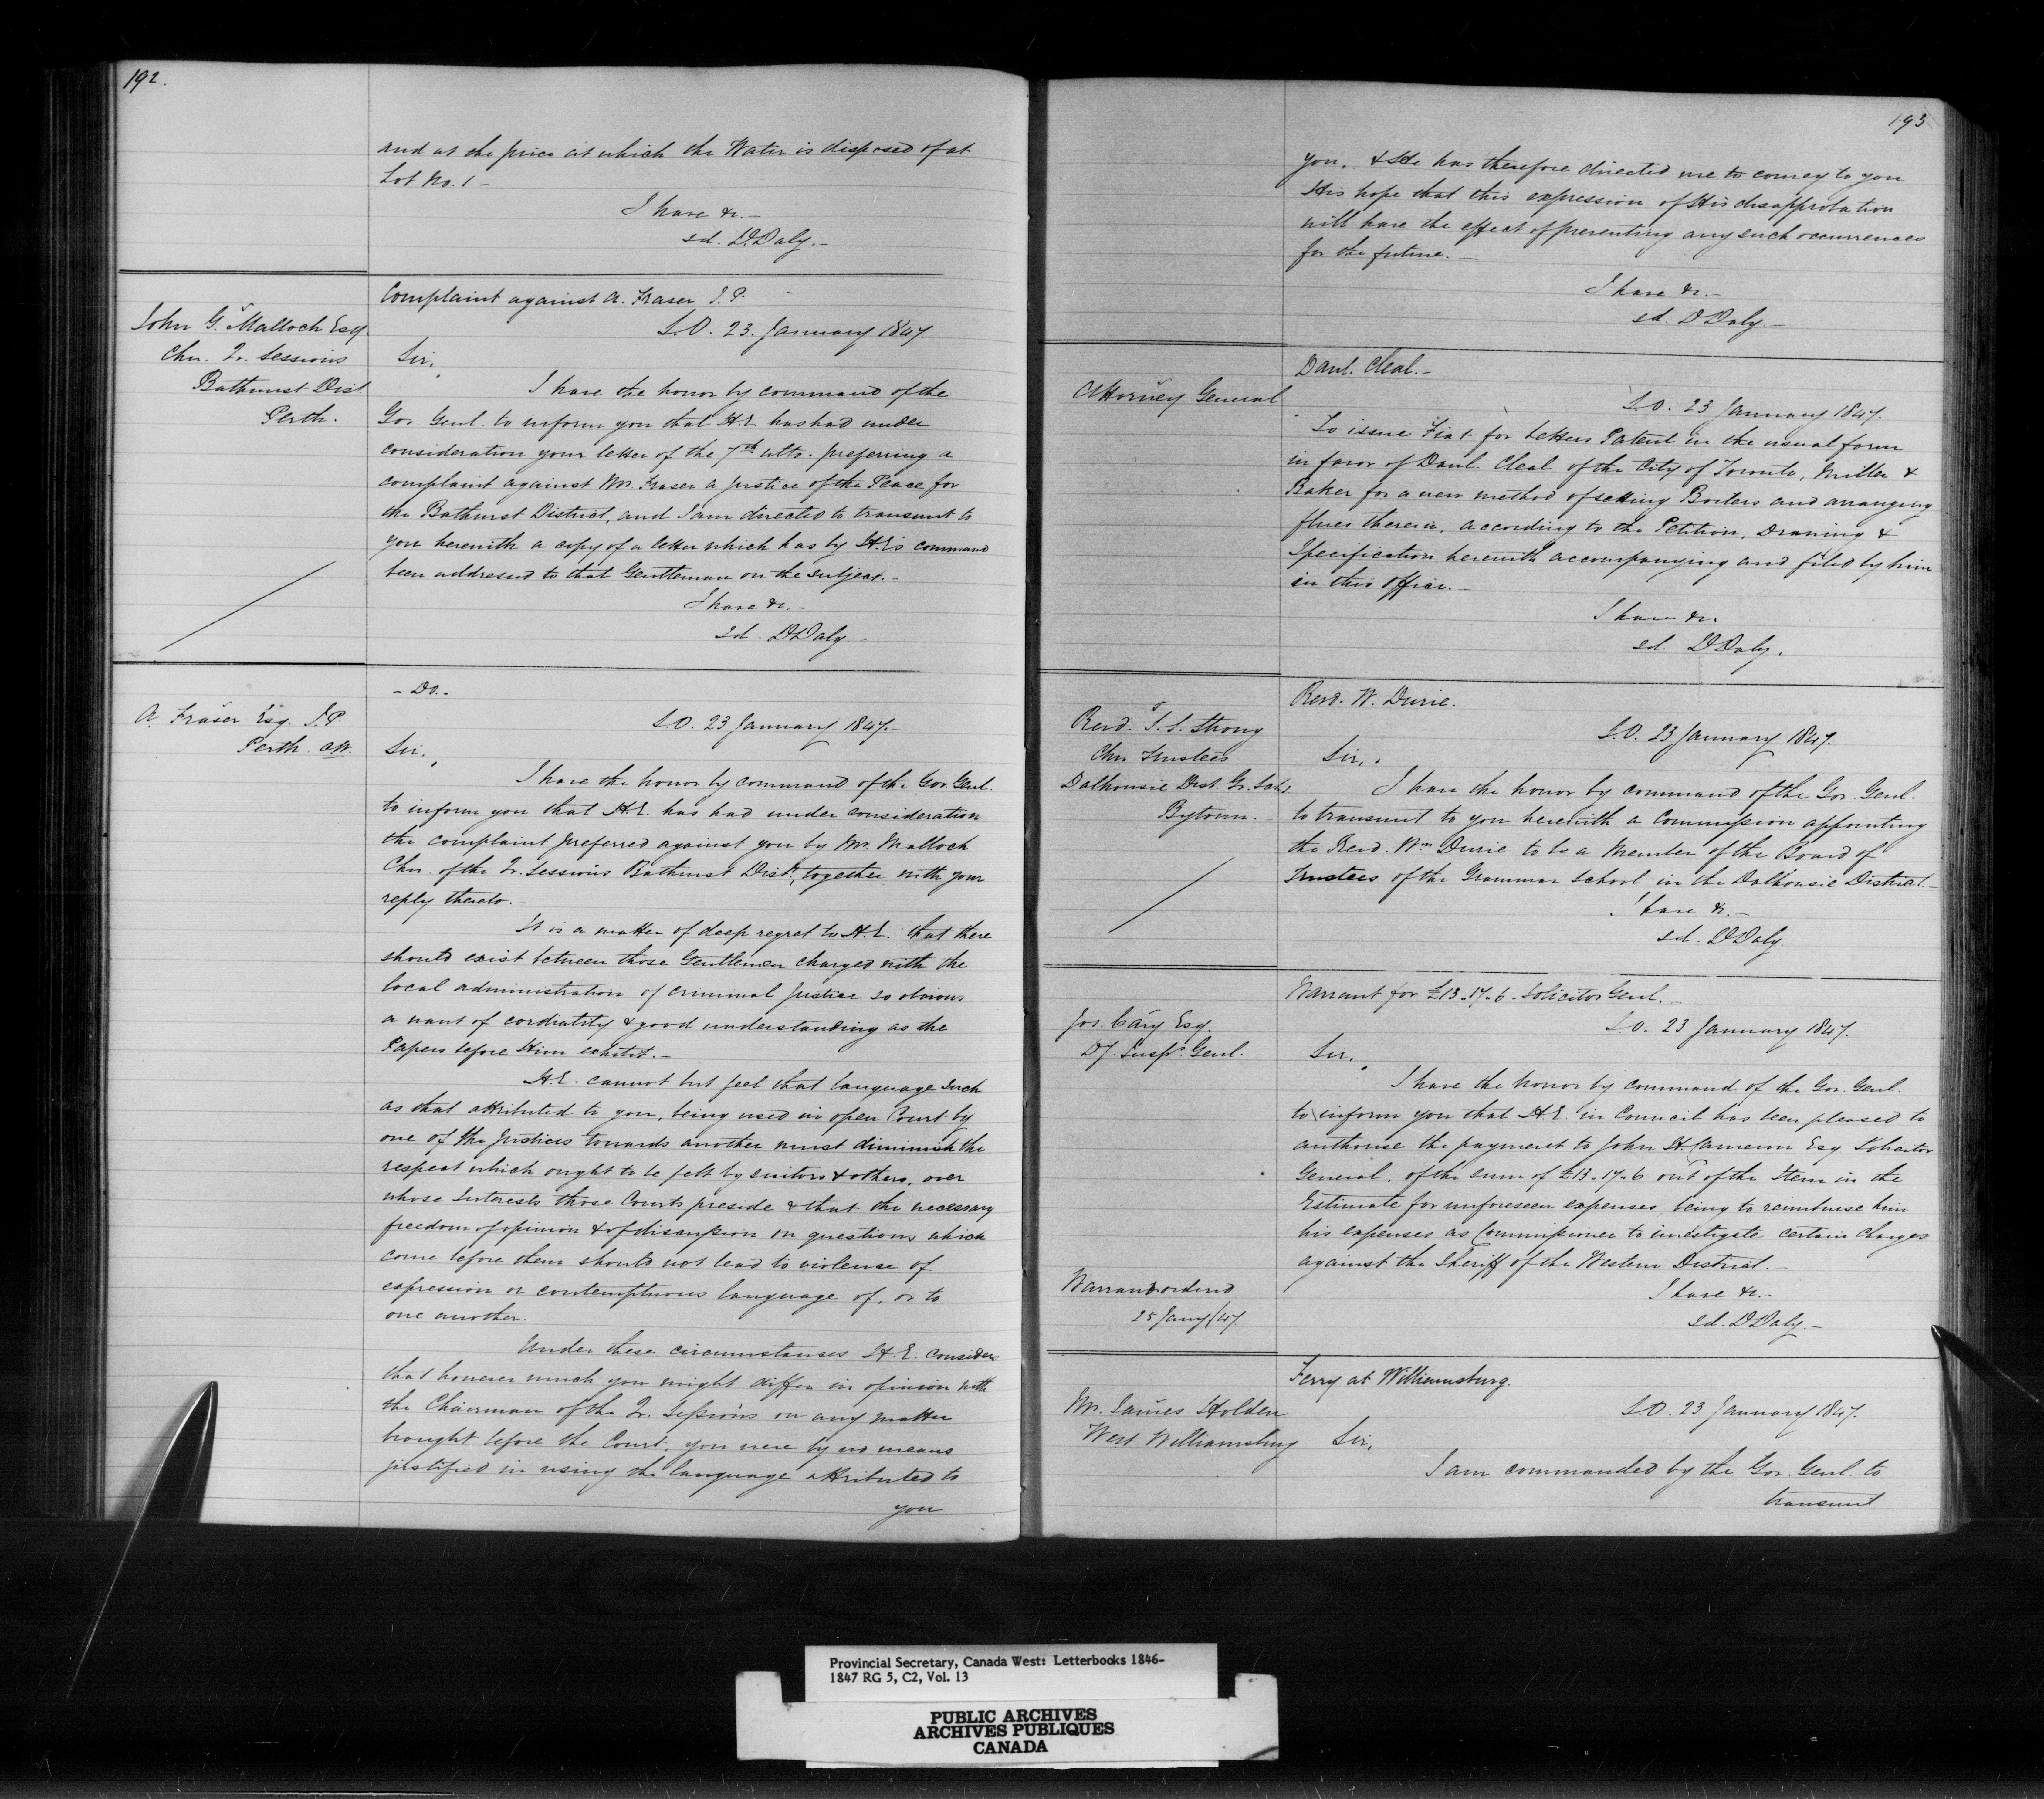 192.
and at the price at which the Water is disposed of at
Lot No. 1 -
I have &c. -
sd. D. Daly. -
Complaint against A. Fraser J. P. -
John G. Malloch Esq.
Chn. Qr. Sessions
Bathurst Dist.
Perth.
S. O. 23. January 1847.
Sir,
I have the honor by command of the
Gov. Genl. to inform you that H. E. has had under
consideration your letter of the 7th ulto. preferring a
complaint against Mr. Fraser a Justice of the Peace for
the Bathurst District, and I am directed to transmit to
you herewith a copy of a letter which has by H. E's command
been addressed to that Gentleman on the subject. -
I have &c. -
sd. D Daly
- Do. -
A. Fraser Esq. J. P.
Perth. CW.
S. O. 23 January 1847. -
Sir,
I have the honor by command of the Gov. Genl.
to inform you that H. E. has had under consideration
the complaint preferred against you by Mr. Malloch
Chn. of the Qr. Sessions Bathurst Dist., together with your
reply thereto. -
It is a matter of deep regret to H. E. that there
should exist between those Gentlemen charged with the
local administration of criminal Justice so obvious
a want of cordiality & good understanding as the
Papers before Him exhibit. -
H. E. cannot but feel that language such
as that attributed to you, being used in open Court by
one of the Justices towards another must diminish the
respect which ought to be felt by suitors & others, over
whose Interests those Courts preside & that the necessary
freedom of opinion & of discussion on questions which
come before them should not lead to violence of
expression or contemptuous language of, or to
one another.
Under these circumstances H. E. considers
that however much you might differ in opinion with
the Chairman of the Qr. Sessions on any matter
brought before the Court, you were by no means
justified in using the language attributed to
you
193
you. & He has therefore directed me to convey to you
His hope that this expression of His disapprobation
will have the effect of preventing any such occurrences
for the future. -
I have &c. -
sd. D Daly -
Danl. Cleal. -
Attorney General
S. O. 23 January 1847.
To issue Fiat for Letters Patent in the usual form
in favor of Danl. Cleal of the City of Toronto, Miller &
Baker for a new method of setting Boilers and arranging
flues therein, according to the Petition, Drawing &
Specification herewith accompanying and filed by him
in this Office. -
I have &c.
sd. D Daly.
Revd. W. Durie.
Revd. S. S. Strong
Chn Trustees
Dalhousie Dist. Gr. Schl.
Bytown.
S. O. 23 January 1847.
Sir,
I have the honor by command of the Gov. Genl.
to transmit to you herewith a Commission appointing
the Revd. Wm Durie to be a Member of the Board of
Trustees of the Grammar School in the Dalhousie District. -
I have &c. -
sd. D Daly
Warrant for £13.17.6. Solicitor Genl. -
Jos. Cary Esq.
Dy. Inspr. Genl.
S. O. 23 January 1847.
Sir,
I have the honor by command of the Gov. Genl.
to inform you that H. E. in Council has been pleased to
authorise the payment to John H. Cameron Esq Solicitor
General, of the sum of £13.17.6 out of the Item in the
Estimate for unforeseen expenses, being to reimburse him
his expenses as Commissioner to investigate certain charges
against the Sheriff of the Western District. -
I have &c. -
sd. D Daly. -
Warrant ordered
25 Jany/47
Ferry at Williamsburg.
Mr. James Holden
West Williamsburg
S. O. 23 January 1847.
Sir,
I am commanded by the Gov. Genl. to
transmit
Provincial Secretary, Canada West: Letterbooks 1846-
1847 RG 5, C2, Vol. 13
PUBLIC ARCHIVES
ARCHIVES PUBLIQUES
CANADA